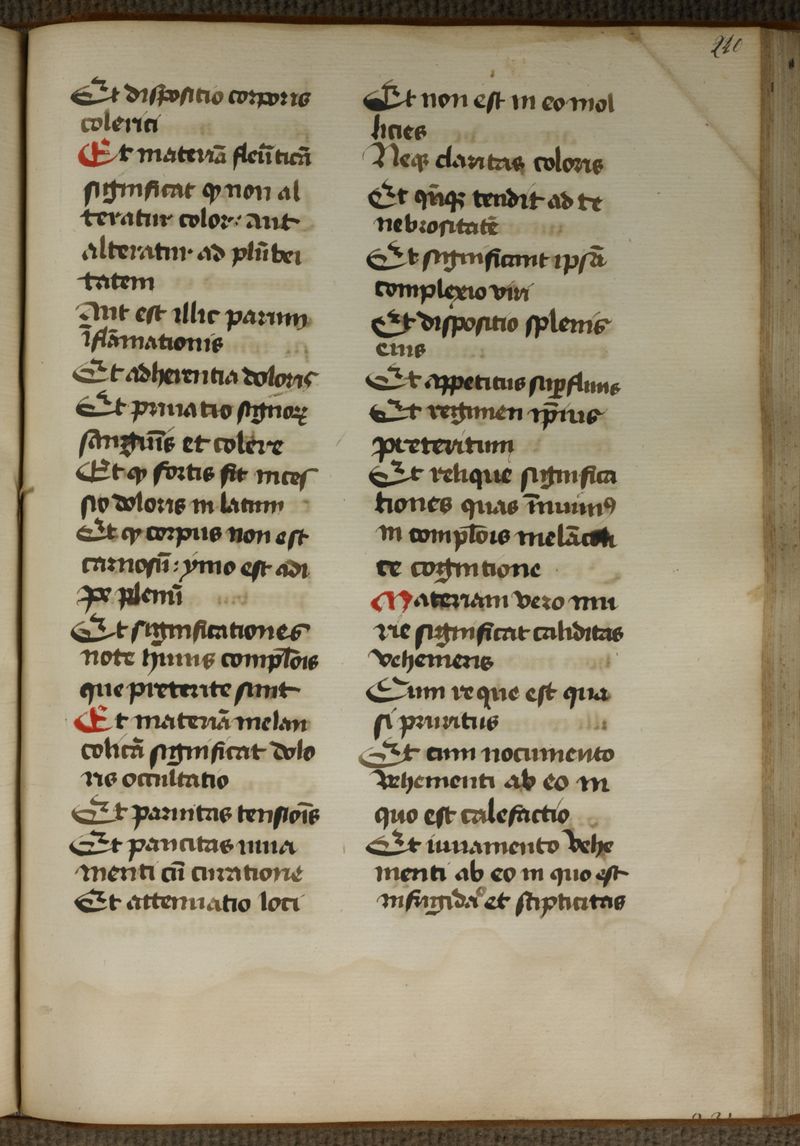 210
Et dispositio corporis
colerici
Et materiā fleūticā
significat ꝙ non al
teratur color: aut
alteratur ad plūbei
tatem
Aut est illic parum
īflāmationis
Et adherentia doloris
Et priuatio signoꝝ
sāguīs et colere
Et ꝙ fortis sit inces
sio doloris in latum
Et ꝙ corpus non est
carnosū: ymo est adi
pe plenū
Et significationes
note huius complōis
que preterite sunt
Et materiā melan
colicā significat dolo
ris occultatio
Et paruitas tensiōis
Et paucitas iuua
menti cū curatione
Et attenuatio loci
Et non est in eo mol
lities
Neqꝫ claritas coloris
Et qn̄qꝫ tendit ad te
nebrositatē
Et significant ipsā
complexio viri
Et dispositio splenis
eius
Et appetitus suꝑfluus
Et regimen ip̄ius
preteritum
Et relique significa
tiones quas īnuimꝰ
in complōis melācoli
ce cognitione
Materiam vero mu
rie significat caliditas
vehemens
Cum re que est qua
si pruritus
Et cum nocumento
vehementi ab eo in
quo est calefactio
Et iuuamento vehe
menti ab eo in quo est
infrigida° et stipticitas